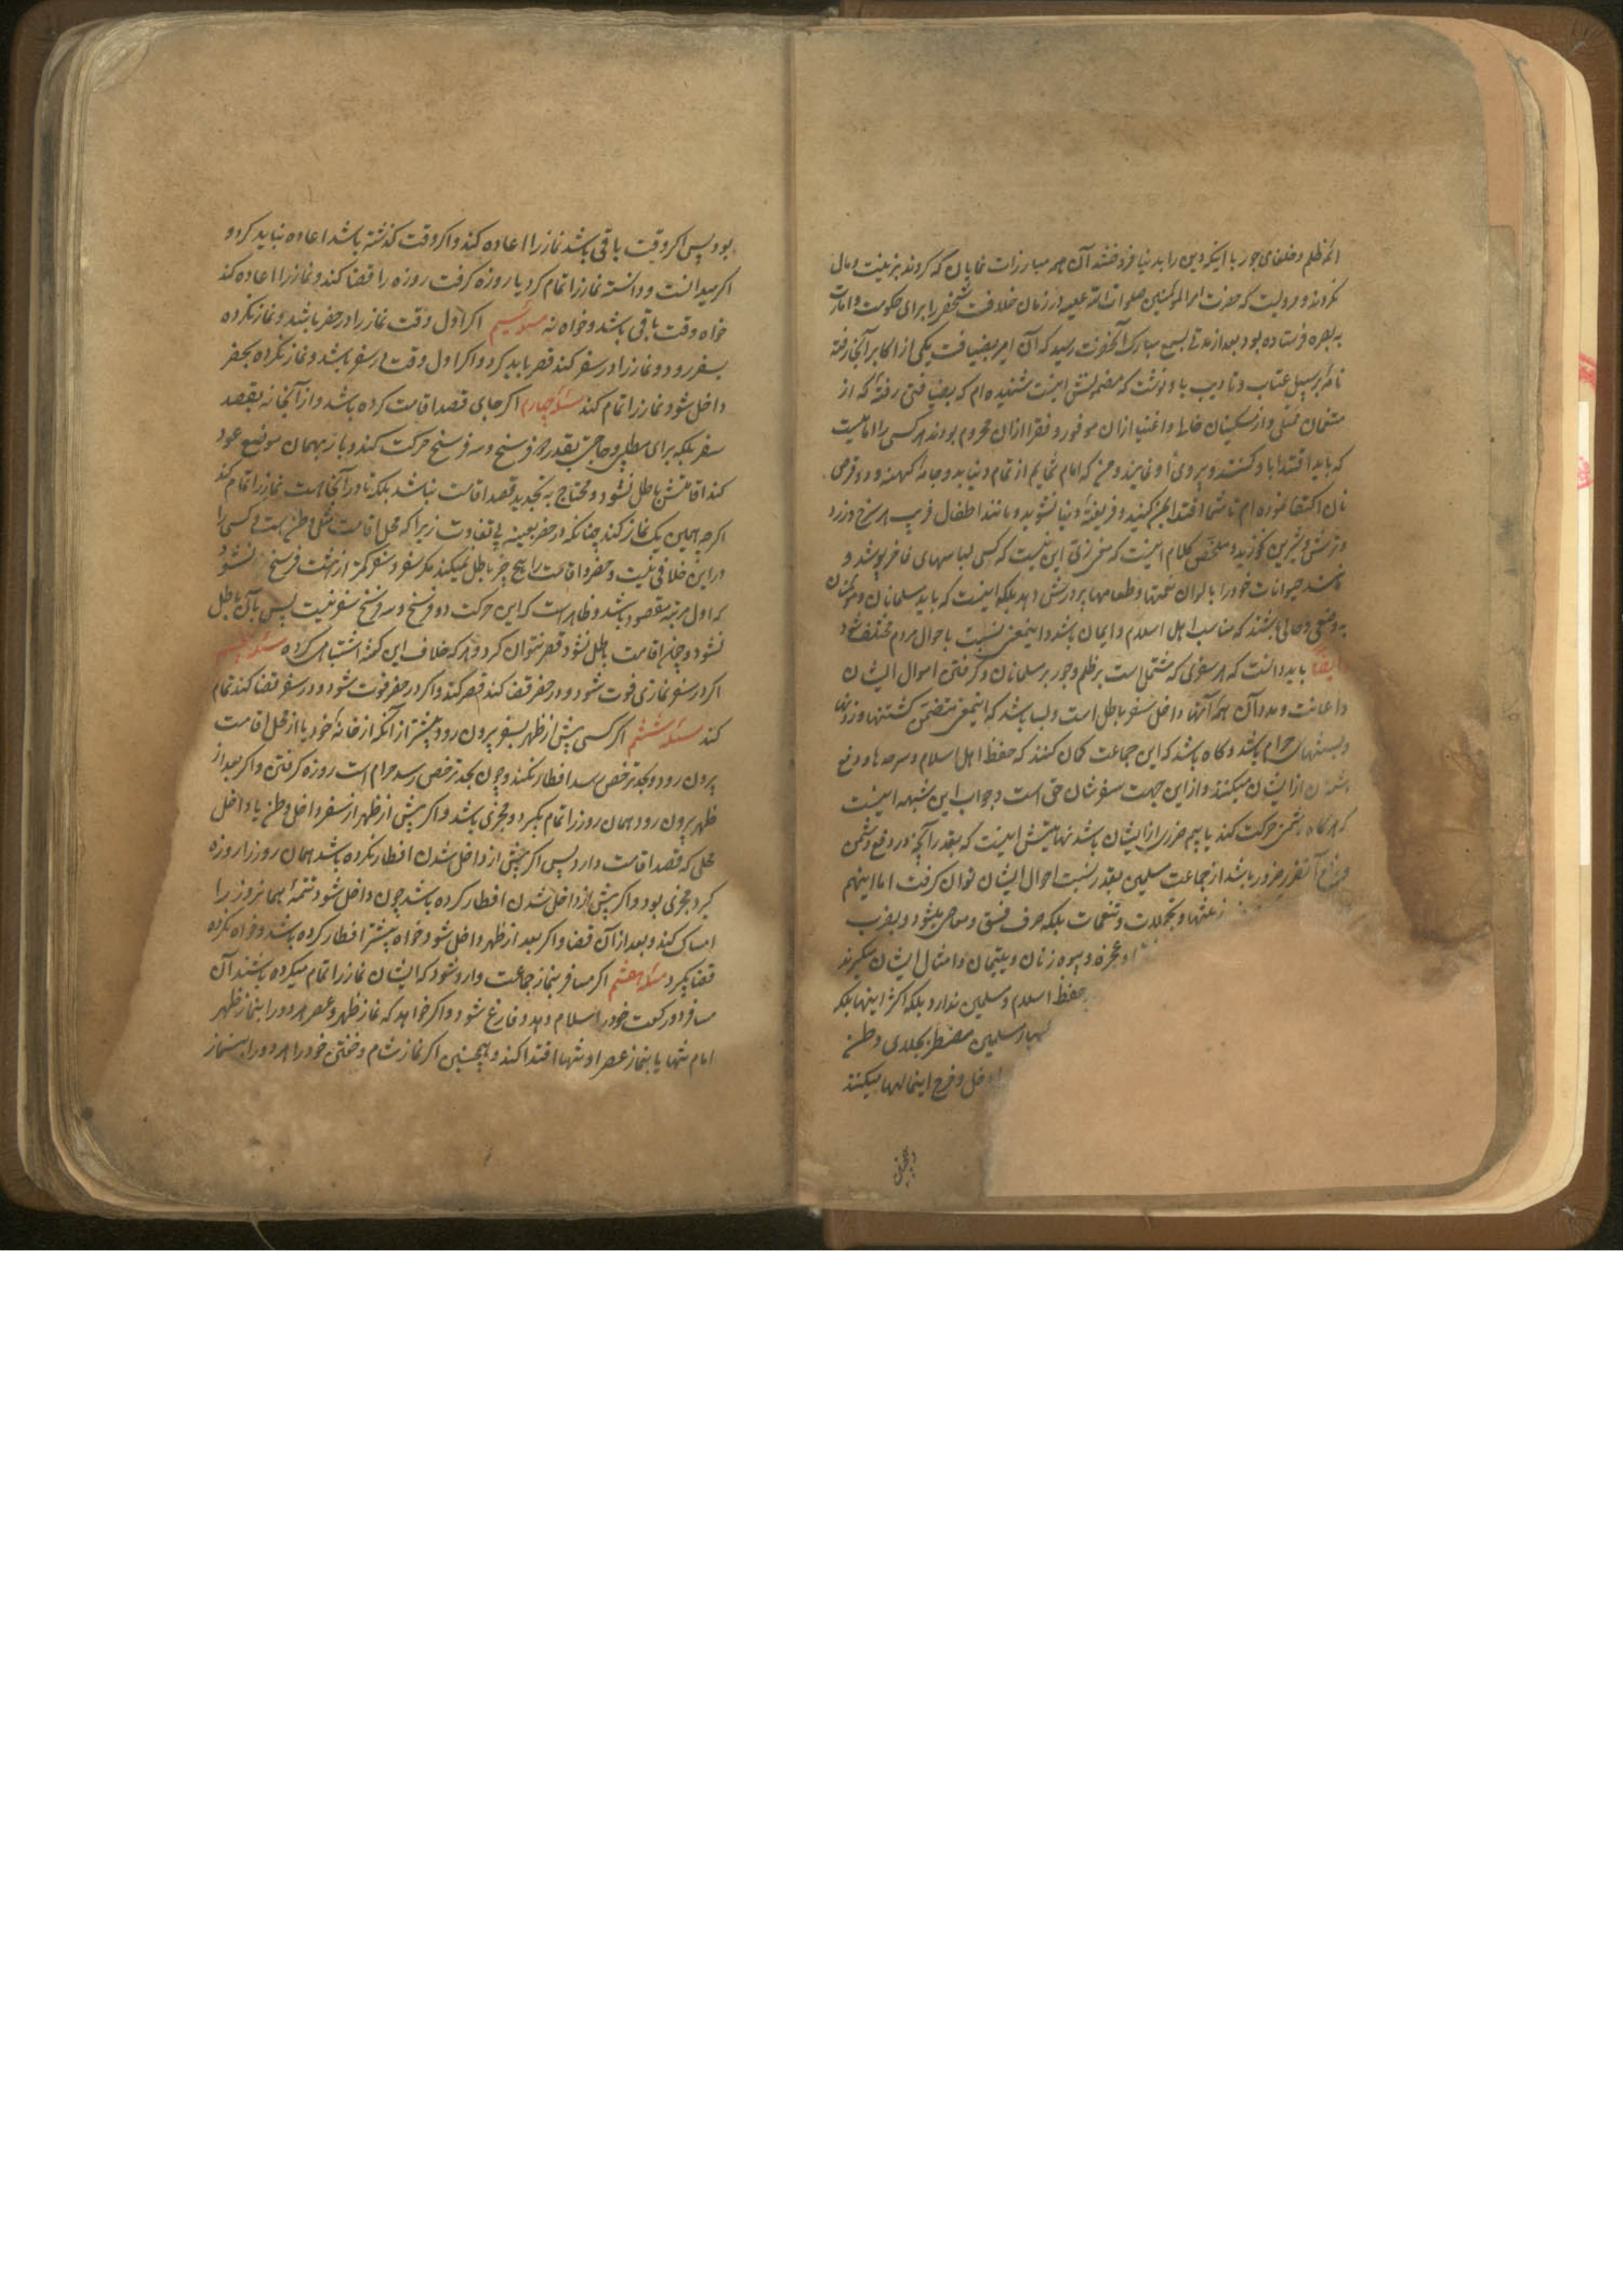 ائمه ظلم و خلفای جور با اینکه دین را بدنیا فروختند آن همه مبارزات نمایان که کردند بزینت و مال
نکردند و مرویست که حضرت امیرالمومنین صلوات الله علیه در زمان خلافت شخصی را برای حکومت و امارت
به بصره فرستاده بود بعد از مدتی بسمع مبارک آنحضرت رسید که آن امیر بضیافت یکی از اکابر آنجا رفته
نامهٔ بر سبیل عتاب و تادیب باو نوشت که مضمونش اینست شنیده ام که بضیافتی رفتهٔ که از
متنعمان ممتلی و از مسکینان خالی و اغنیا ازان موفور و فقرا ازان محروم بودند هر کسی را امامیست
که باید اقتدا باو کنند و پیروی او نمایند و من که امام شمایم از تمام دنیا بدو جامهٔ کهنه و دو قرص
نان اکتفا نموده ام تا شما اقتدا بمن کنید و فریفتهٔ دنیا نشوید و مانند اطفال فریب هر سرخ و زرد
و ترش و شیرین نخورید و ملخص کلام اینست که غرض این نیست که کسی لباسهای فاخر پوشد و
مانند حیوانات خود را بالوان نعمتها و طعامها پرورش دهد بلکه اینست که باید مسلمانان و مومنان
به وضعی و حالی باشند که مناسب اهل اسلام و ایمان باشد و اینمعنی نسبت باحوال مردم مختلف شود
ایضا باید دانست که هر سفری که مشتمل است بر ظلم و جور بر مسلمانان و گرفتن اموال ایشان
و اعانت و مدد آن همه آنها داخل سفر باطل است و بسا باشد که اینمعنی متضمن کشتنها و زدنها
و بستنهای حرام باشد و گاه باشد که این جماعت گمان کنند که حفظ اهل اسلام و سرحدها و دفع
دشمنان از ایشان میکنند و از این جهت سفرشان حق است و جواب این شبهه اینست
که هرگاه دشمن حرکت کند یا بیم ضرری از ایشان باشد نهایتش اینست که بقدر آنچه در دفع دشمن
و منع آنقدر ضرور باشد از جماعت مسلمین بقدر نسبت احوال ایشان توان گرفت اما اینهم
زینتها و تجملات و تنعمات بلکه صرف فسق و معاصی میشود و بضرب
و عجزه و بیوه زنان و یتیمان و امثال ایشان میگیرند
حفظ اسلام و مسلمین ندارد بلکه اکثر اینها بلکه
مسلمین مضطر بجلای وطن
دخل و خرج اینمالها میکنند
بود پس اگر وقت باقی باشد نماز را اعاده کند و اگر وقت گذشته باشد اعاده نباید کرد و
اگر میدانست و دانسته نماز را تمام کرد یا روزه گرفت روزه را قضا کند و نماز را اعاده کند
خواه وقت باقی باشد و خواه نه مسئله سیم اگر اول وقت نماز را در حضر باشد و نماز نکرده
بسفر رود و نماز را در سفر کند قصر باید کرد و اگر اول وقت در سفر باشد و نماز نکرده بحضر
داخل شود نماز را تمام کند مسئله چهارم اگر جای قصد اقامت کرده باشد و از آنجا نه بقصد
سفر بلکه برای مطلبی و حاجتی بقدر دو فرسخ و سه فرسخ حرکت کند و باز بهمان موضع عود
کند اقامتش باطل نشود و محتاج به تجدید قصد اقامت نباشد بلکه تا در آنجا است نماز را تمام کند
اگرچه همین یک نماز کند چنانکه در حضر بعینه بی تفاوت زیرا که محل اقامت مثل وطن است و کسی را
در این خلافی نیست و حضر و اقامت را هیچ چیز باطل نمیکند مگر سفر و سفر کمتر از هشت فرسخ نشود
که اول مرتبه مقصود باشد و ظاهر است که این حرکت دو فرسخ و سه فرسخ سفر نیست پس بآن باطل
نشود و چون اقامت باطل نشود قصر نتوان کرد و هر که خلاف این گفته اشتباهی کرده مسئله پنجم
اگر در سفر نمازی فوت شود و در حضر قضا کند قصر کند و اگر در حضر فوت شود و در سفر قضا کند تمام
کند مسئله ششم اگر کسی پیش از ظهر بسفر بیرون رود پیشتر از آنکه از خانهٔ خود یا از محل اقامت
بیرون رود و بحد ترخص رسد افطار نکند و چون بحد ترخص رسد حرام است روزه گرفتن و اگر بعد از
ظهر بیرون رود همان روز را تمام بگیرد و مجزی باشد و اگر پیش از ظهر از سفر داخل وطن یا داخل
محلی که قصد اقامت دارد پس اگر پیش از داخل شدن افطار نکرده باشد همان روز را روزه
گیرد مجزی بود و اگر پیش از داخل شدن افطار کرده باشد چون داخل شود تتمهٔ همانروز را
امساک کند و بعد از آن قضا و اگر بعد از ظهر داخل شود خواه پیشتر افطار کرده باشد و خواه نکرده
قضا بگیرد مسئله هفتم اگر مسافر بنماز جماعت وارد شود که ایشان نماز را تمام میکرده باشند آن
مسافر دو رکعت خود را سلام دهد و فارغ شود و اگر خواهد که نماز ظهر و عصر هر دو را بنماز ظهر
امام تنها یا بنماز عصر او تنها اقتدا کند و همچنین اگر نماز شام و خفتن خود را هر دو را بنماز